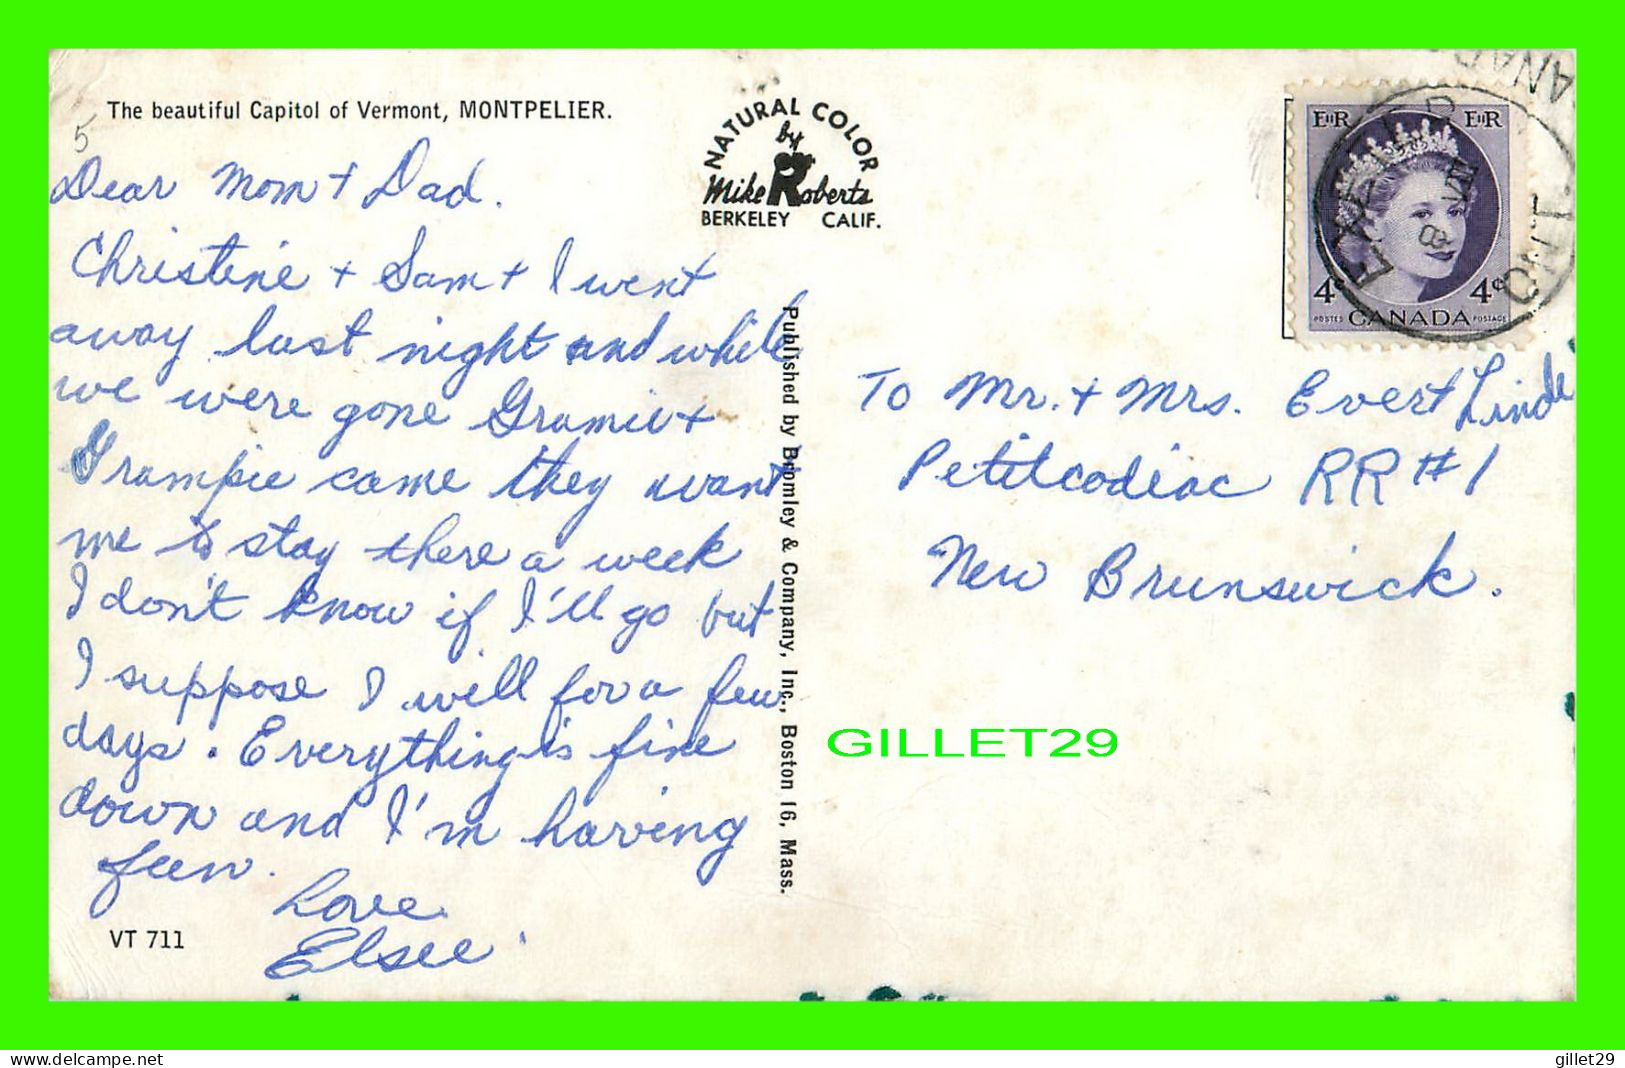 The beautiful Capitol of Vermont, MONTPELIER.
5
Dear Mom + Dad.
Christine + Sam + I went
away last night and while
we were gone Gramie +
Grampie came they want
me to stay there a week
I don't know if I'll go but
I suppose I will for a few
days. Everything is fine
down and I'm having
fun.
Love
Elsie
VT 711
NATURAL COLOR
by
Mike Roberts
BERKELEY CALIF.
Published by Bromley & Company, Inc., Boston 16, Mass.
EIIR EIIR
4¢ 4¢
POSTES CANADA POSTAGE
ONT
To Mr. + Mrs. Evert Linde
Petitcodiac RR #1
New Brunswick.
GILLET29
www.delcampe.net
gillet29